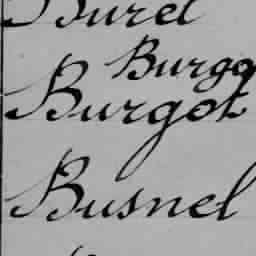 Burel
Burgo
Burgot
Busnel